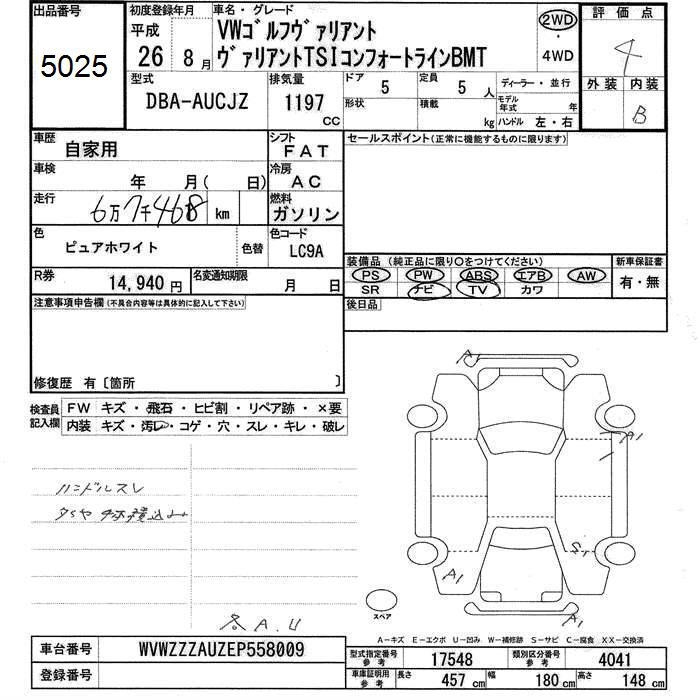 出品番号
5025
初度登録年月
平成
26 8月
車名・グレード
VWゴルフヴァリアント
ヴァリアントTSIコンフォートラインBMT
2WD
・
4WD
評価点
4
外装 内装
B
型式
DBA-AUCJZ
排気量
1197
CC
ドア
5
定員
5 人
形状
積載
kg
ディーラー・並行
モデル年式 年
ハンドル 左・右
車歴
自家用
シフト
FAT
車検
年 月( 日)
冷房
AC
走行
6万7千468 km
燃料
ガソリン
色
ピュアホワイト
色替
色コード
LC9A
R券
14,940 円
名変通知期限
月 日
セールスポイント(正常に機能するものに限ります)
装備品(純正品に限り○をつけてください)
PS PW ABS エアB AW
SR ナビ TV カワ
新車保証書
有・無
後日品
注意事項申告欄(不具合内容等は具体的に記入して下さい)
修復歴 有〔箇所 〕
検査員
記入欄
FW キズ・飛石・ヒビ割・リペア跡・×要
内装 キズ・汚レ・コゲ・穴・スレ・キレ・破レ
ハンドルスレ
タイヤ4本積込み
A
A1
S1
A1
A1
A.U
スペア
A-キズ E-エクボ U-凹み W-補修跡 S-サビ C-腐食 XX-交換済
車台番号
WVWZZZAUZEP558009
登録番号
型式指定番号
参考
17548
類別区分番号
参考
4041
車庫証明用
参考
長さ 457 cm 幅 180 cm 高さ 148 cm